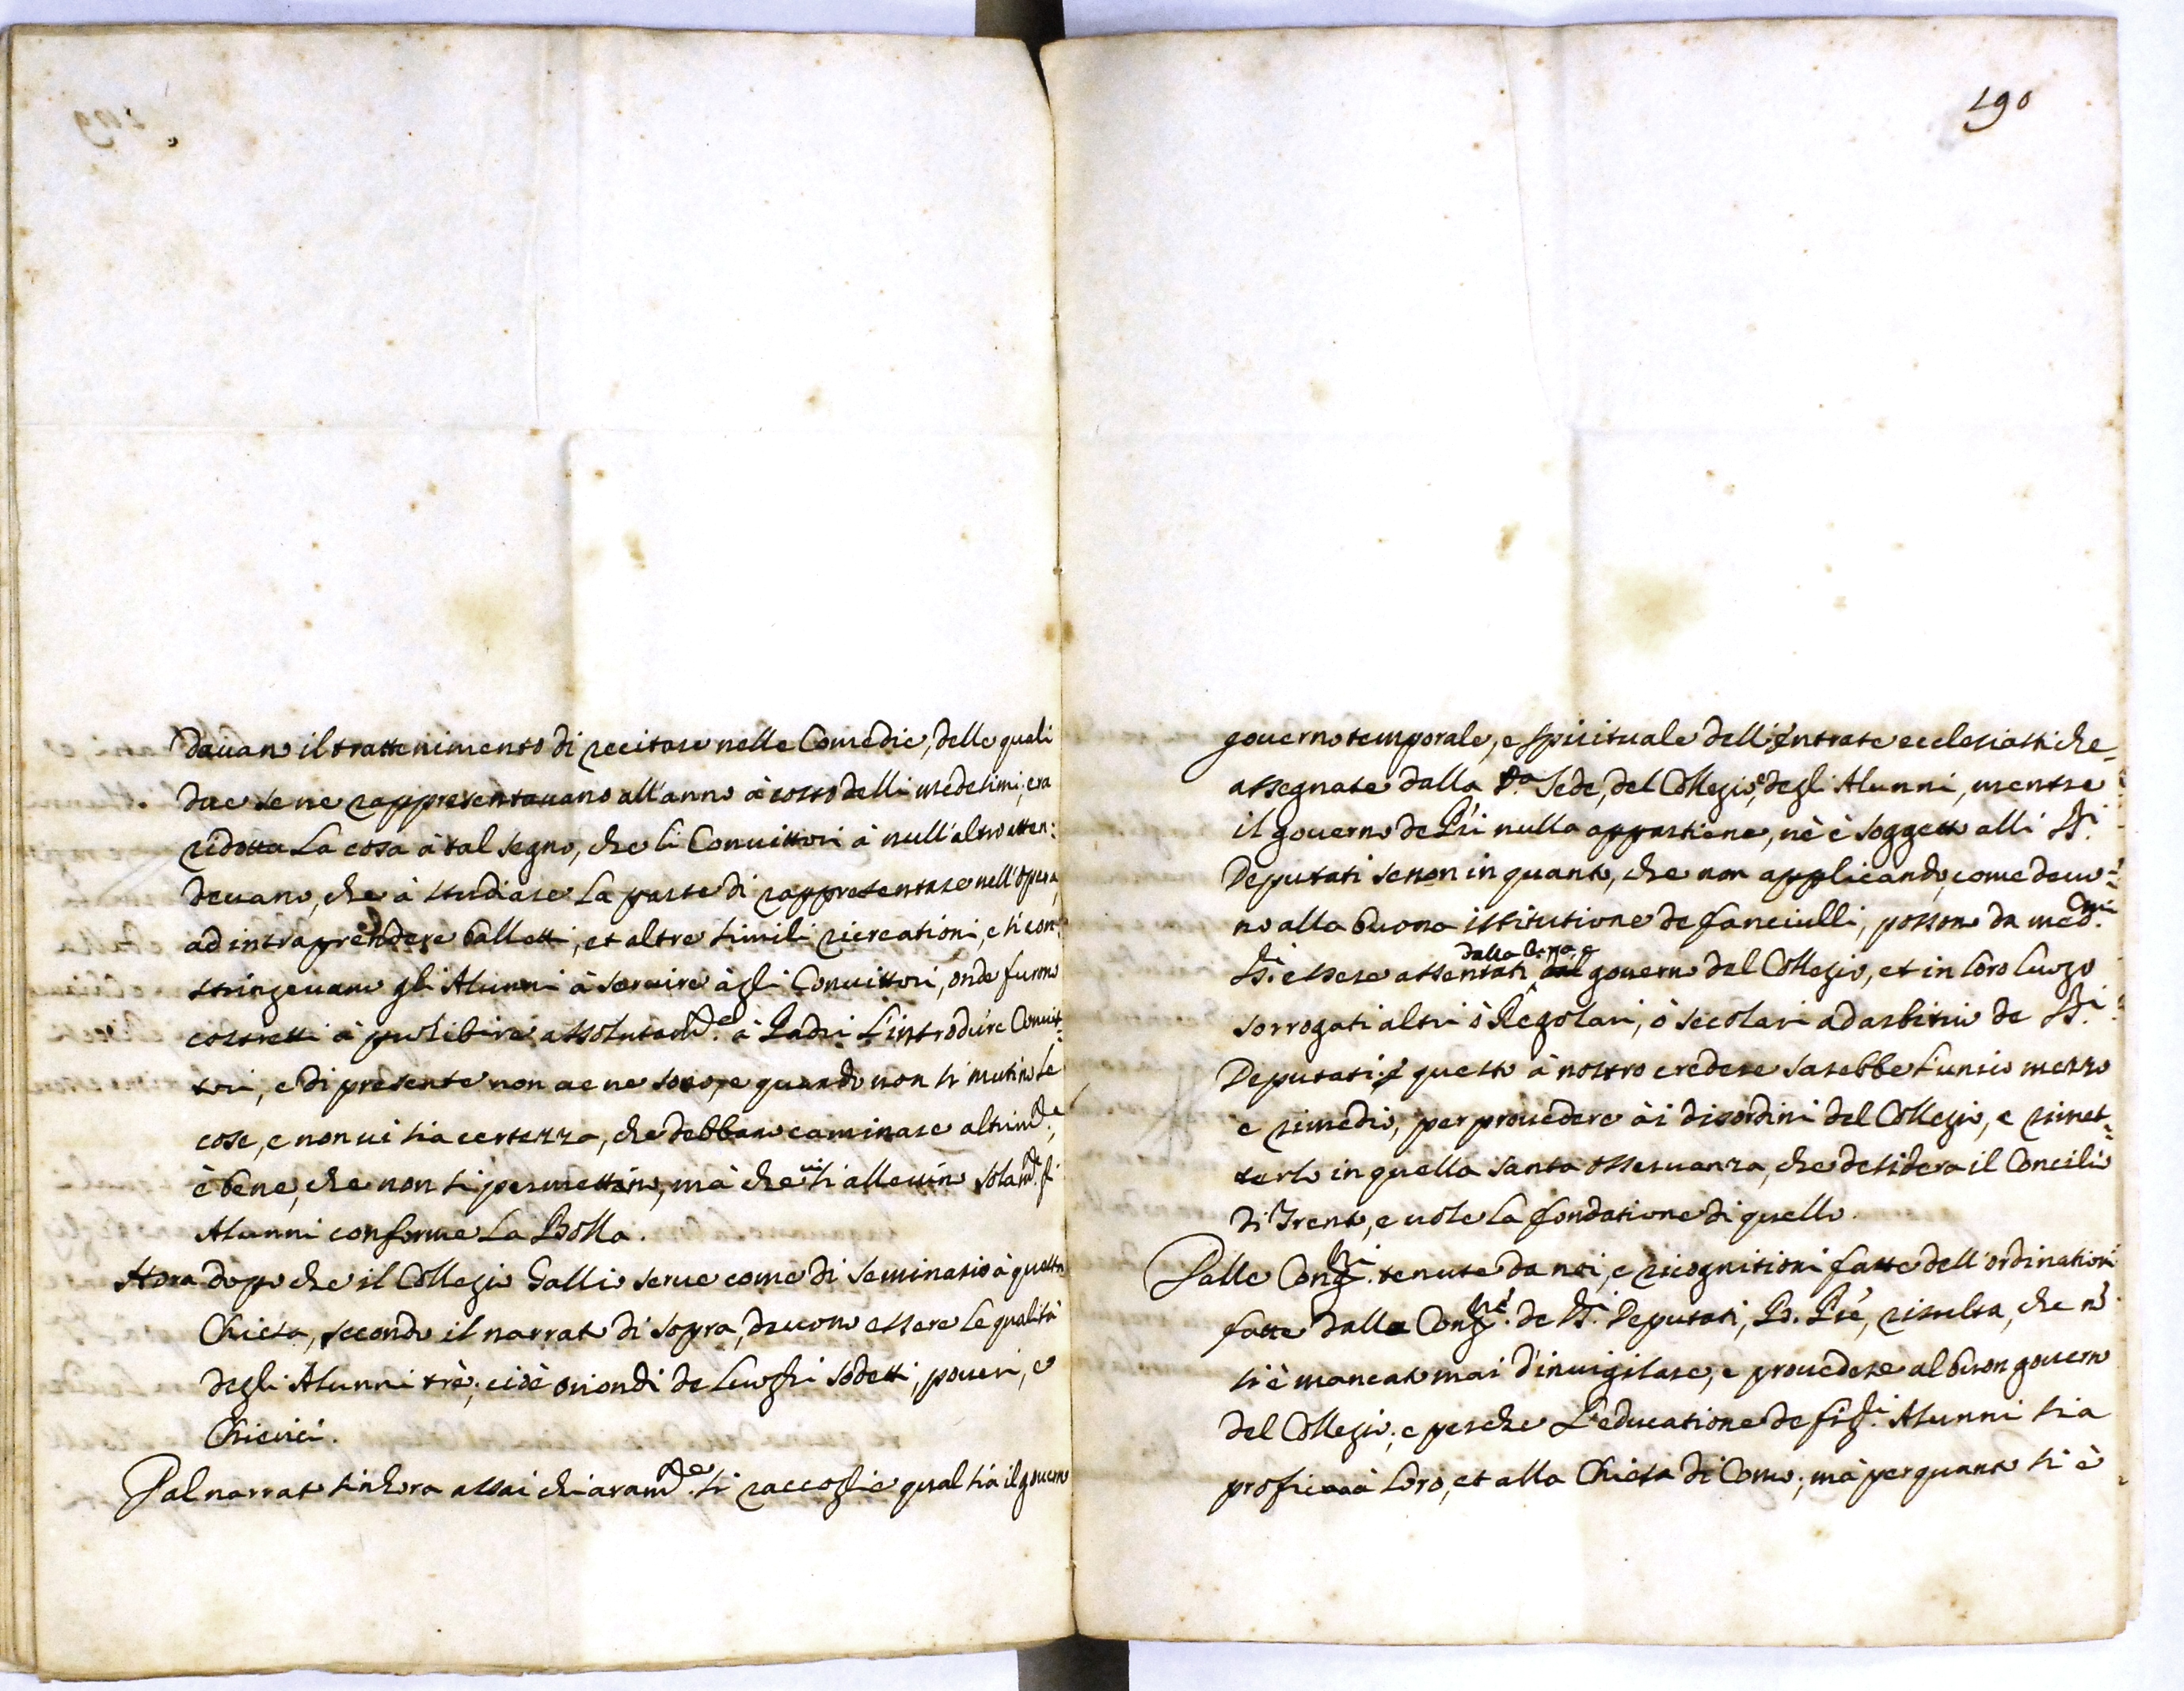 dauano il trattenimento di recitare nelle Comedie, delle quali
due se ne rappresentauano all'anno à costo delli medesimi; era
ridotta La cosa à tal segno, che li Conuittori à null'altro atten:
deuano, che à studiare La parte di rappresentare nell'opera,
ad intraprendere balletti, et altre simili ricreationi, e si con:
stringeuano gli Alunni à seruire àgli Conuittori, onde furono
costretti à prohibire assolutam.te à Padri L'introdure Conuit:
tori, e di presente non ue ne sono, e quando non si mutino Le
cose, e non ui sia certezza, che debbano caminare altrim.te,
è bene, che non si permettino, mà che ui si alleuino solam.te gli
Alunni conforme La Bolla.
Hora dopo che il Collegio Gallio serue come di Seminario à questa
Chiesa, secondo il narrato di sopra, deuono essere Le qualità
degli Alunni trè; cioè oriondi de Luoghi sodetti, poueri, e
Chierici.
Dal narrato sinhora assai chiaram.te si raccoglie qual sia il gouerno
190
gouerno temporale, e spirituale dell'entrate ecclesiastiche
assegnate dalla S.a Sede, del Collegio, e degli Alunni, mentre
il gouerno de Pri nulla appartiene, nè è soggetto alli SS.i
Deputati se non in quanto, che non applicando, come deuo:
no alla buona istitutione de fanciulli, possono da med.mi
SS.i essere assentati dalla cura, e gouerno del Collegio, et in loro luogo
sorrogati altri ò Regolari, ò secolari ad arbitrio de SS.i
Deputati; e questo à nostro credere sarebbe l'unico mezzo
e rimedio, per prouedere ài disordini del Collegio, e rimet:
terlo in quella santa osseruanza, che desidera il Concilio
di Trento, e uole la fondatione di quello.
Dalle Cong.ni tenute da noi, e ricognitioni fatte dell'ordinationi
fatte dalla Cong.ne de SS.i Deputati, risulta, che nò
si è mancato mai d'inuigilare, e prouedere al buon gouerno
del Collegio, e perche L'educatione de figli Alunni sia
proficua à loro, et alla Chiesa di Como; mà per quanto si è